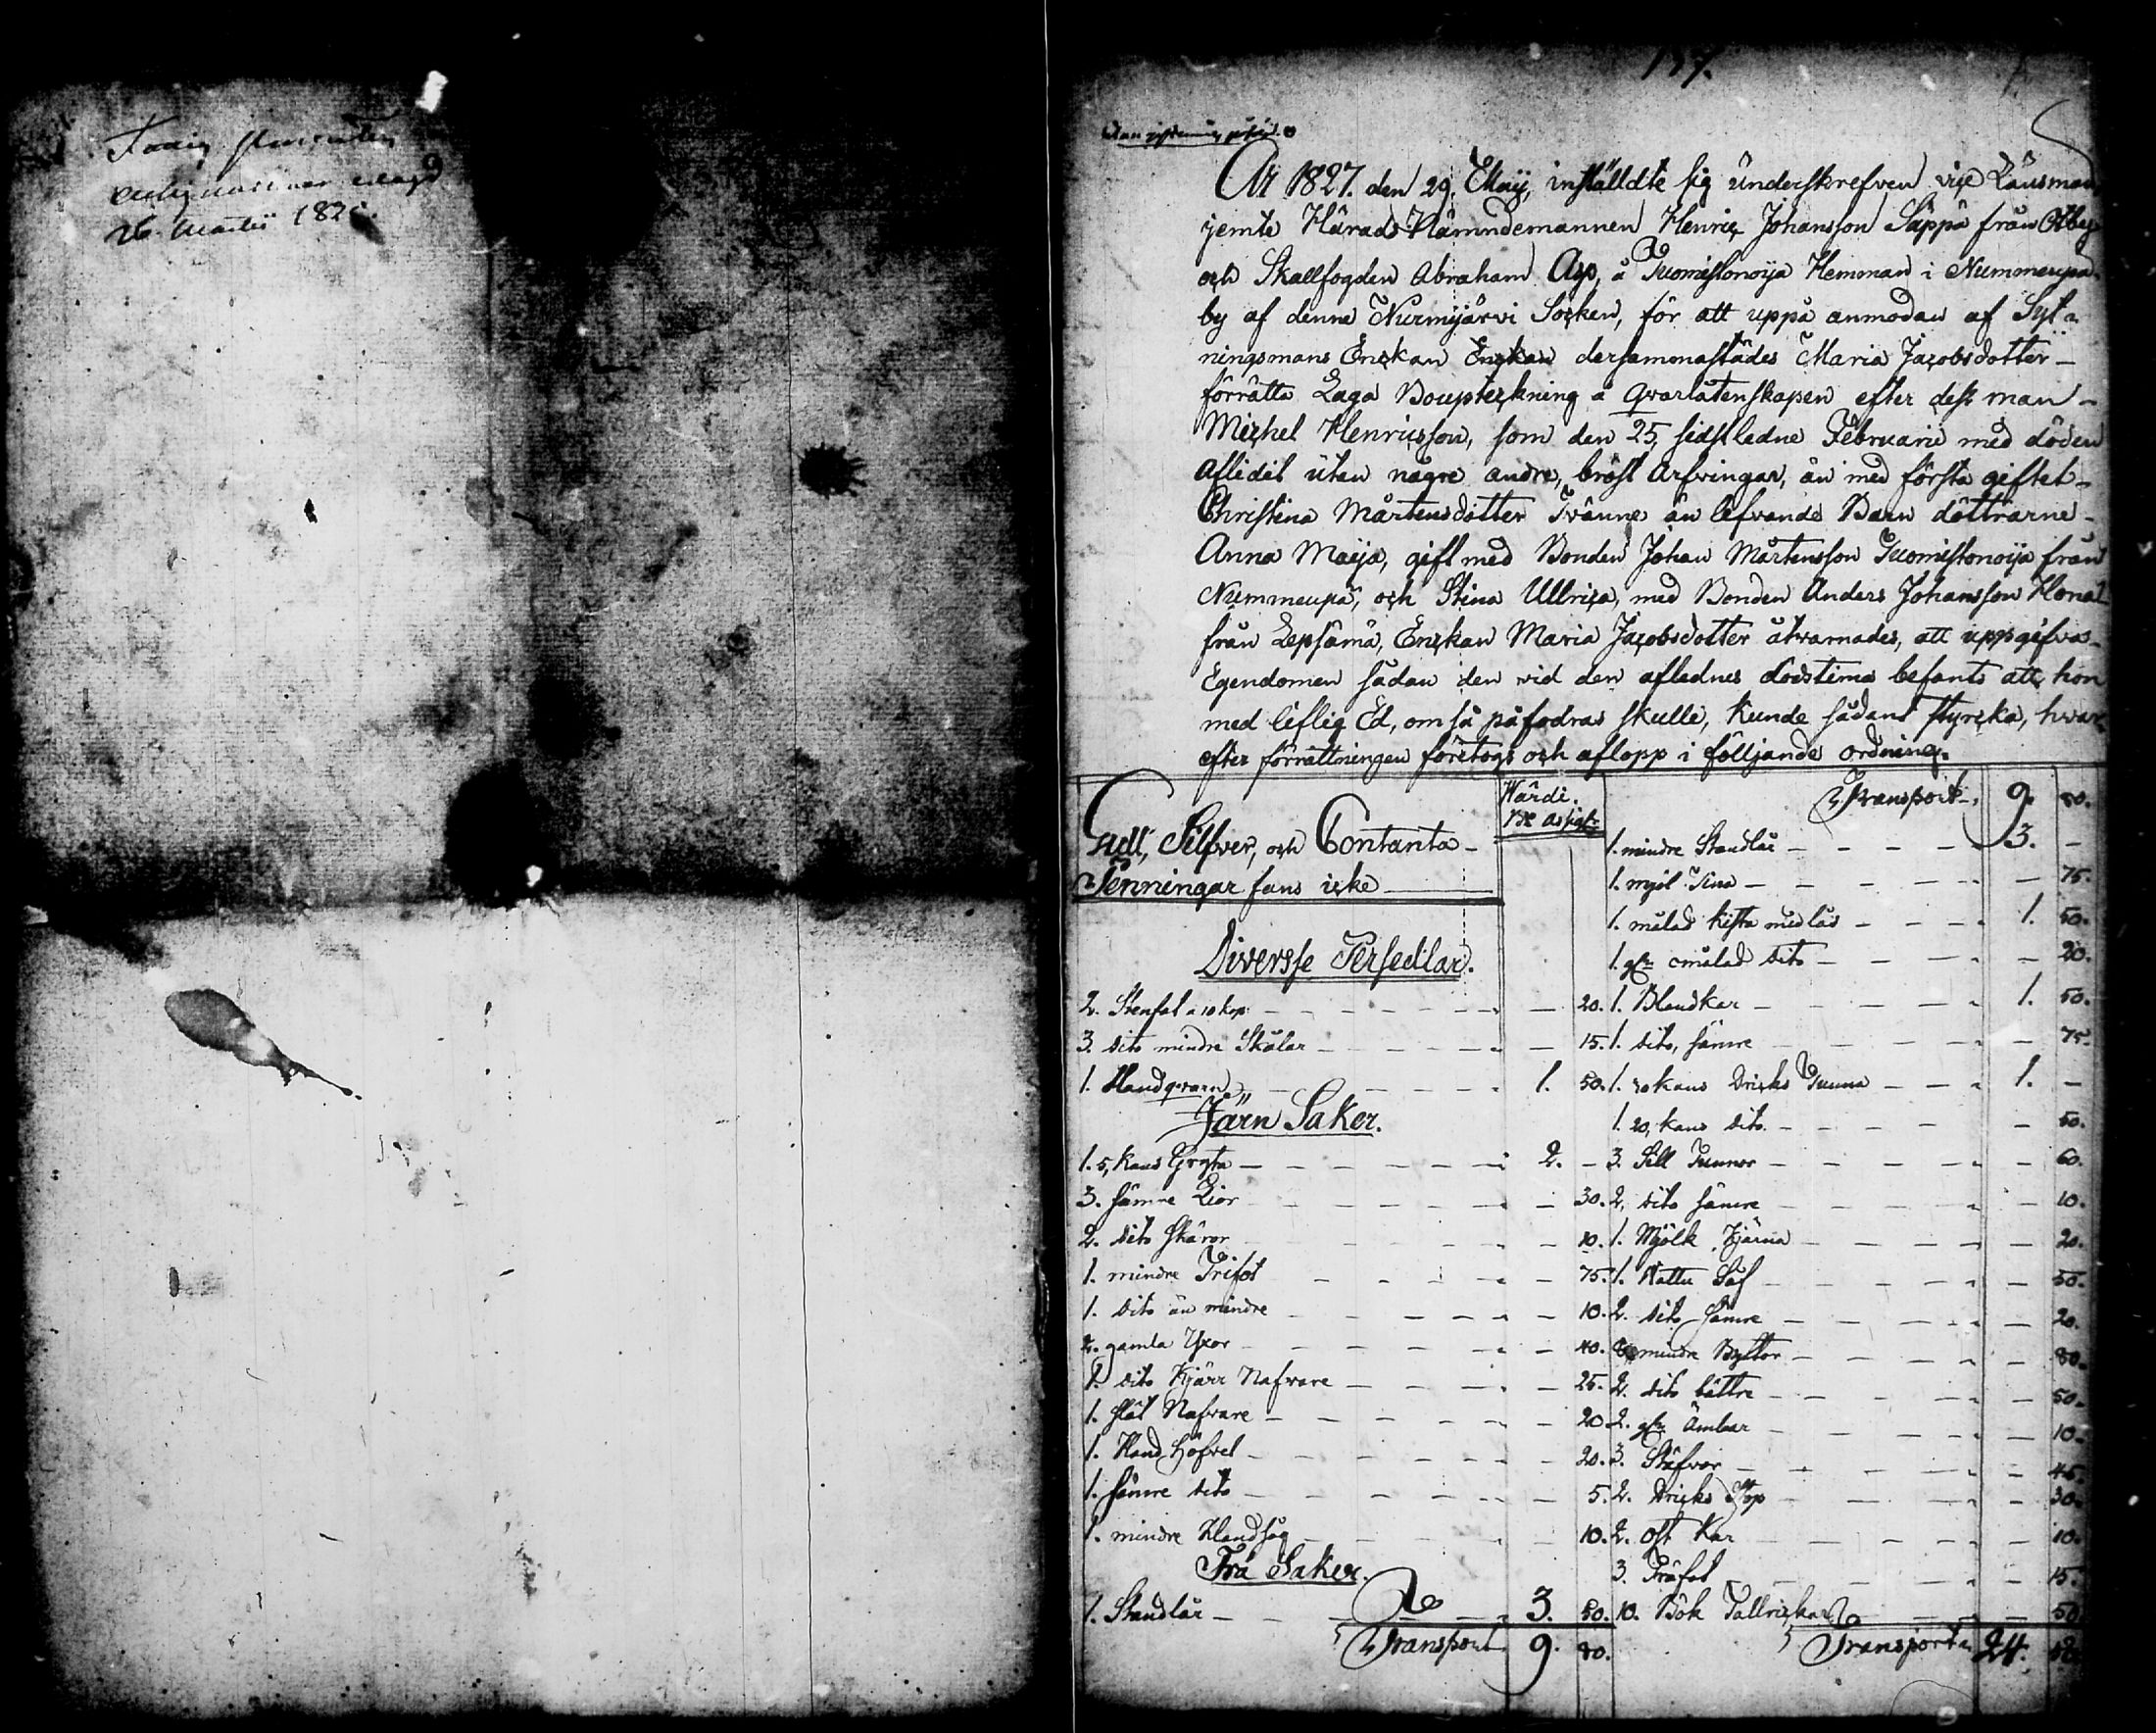 26. Martii 182
137.
År 1827. den 29. Maij, inställdte sig underskrefven vice Länsman
jemte Härads Nämndemannen Henric Johansson Säppä från
och Skallfogden Abraham Asp, å Tuomistonoija Hemman i Nummenpä
by af denna Nurmijärvi Socken, för att uppå anmodan af Syt-
ningsmans Enckan Enckan dersammastädes Maria Jacobsdotter
förrätta Laga Boupteckning å qvarlåtenskapen efter dess man
Michel Henricsson, som den 25, sidstledne Februarii med döden
aflidit utan någre andre, bröst Arfvingar, än med första giftet
Christina Mårtensdotter Tvänne än lefvande Barn döttrarne
Anna Maija, gift med Bonden Johan Mårtensson Tuomistonoija från
Nummenpä, och Stina Ullrica, med Bonden Anders Johansson
från Lepsämä, Enckan Maria Jacobsdotter åtvarnades, att uppgifva
Egendomen sådan den vid den aflednes dödstima befants att hon
med liflig Ed, om så påfodras skulle, kunde sådant styrcka, hvar
efter förrättningen företogs och aflopp i följjande ordning.
Wärdi.
Guld, Silfver, och Contanta
Penningar fans icke
Diversse Persedlar.
2. Stenfat a 10 kop: — 20.
3. dito mindre Skålar — 15.
1. Handqvarn 1. 50.
Järn Saker.
1. 5, kans Gryta 2. -
3. sämre Lior — 30.
2. dito Skäror — 10.
1. mindre Trifot — 75.
1. dito än mindre — 10.
2. gamla Yxor — 40.
1. dito Kjärr Nafvare — 25.
1. stål Nafvare — 20.
1. Hand Höfvel — 20.
1. sämre dito — 5.
1. mindre Handsåg — 10.
Trä Saker.
1. Standlår 3. 50.
Transport 9. 80.
Transport 9. 80.
1. mindre Standlår 3. -
1. mjöl Tina — 75.
1. målad kista med lås 1. 50.
1. omålad dito — 20.
1. Blandkar 1. 50.
1. dito, sämre — 75.
1. kans Dricks Tunna 1. -
1. 20, kans dito — 50.
3. Sill Tunnor — 60.
2. dito sämre — 10.
1. Mjölk Kjärna — 20.
1. Wattu Så — 50.
2. dito sämre — 20.
mindre Byttor — 80.
2. dito bättre — 50.
2. Ämbar — 10.
3. Stäfvor — 45.
2. Dricks Stop — 30.
2. Ost Kar — 10.
3. Träfat — 15.
10. Bök Tallrickar — 50.
Transport 24.